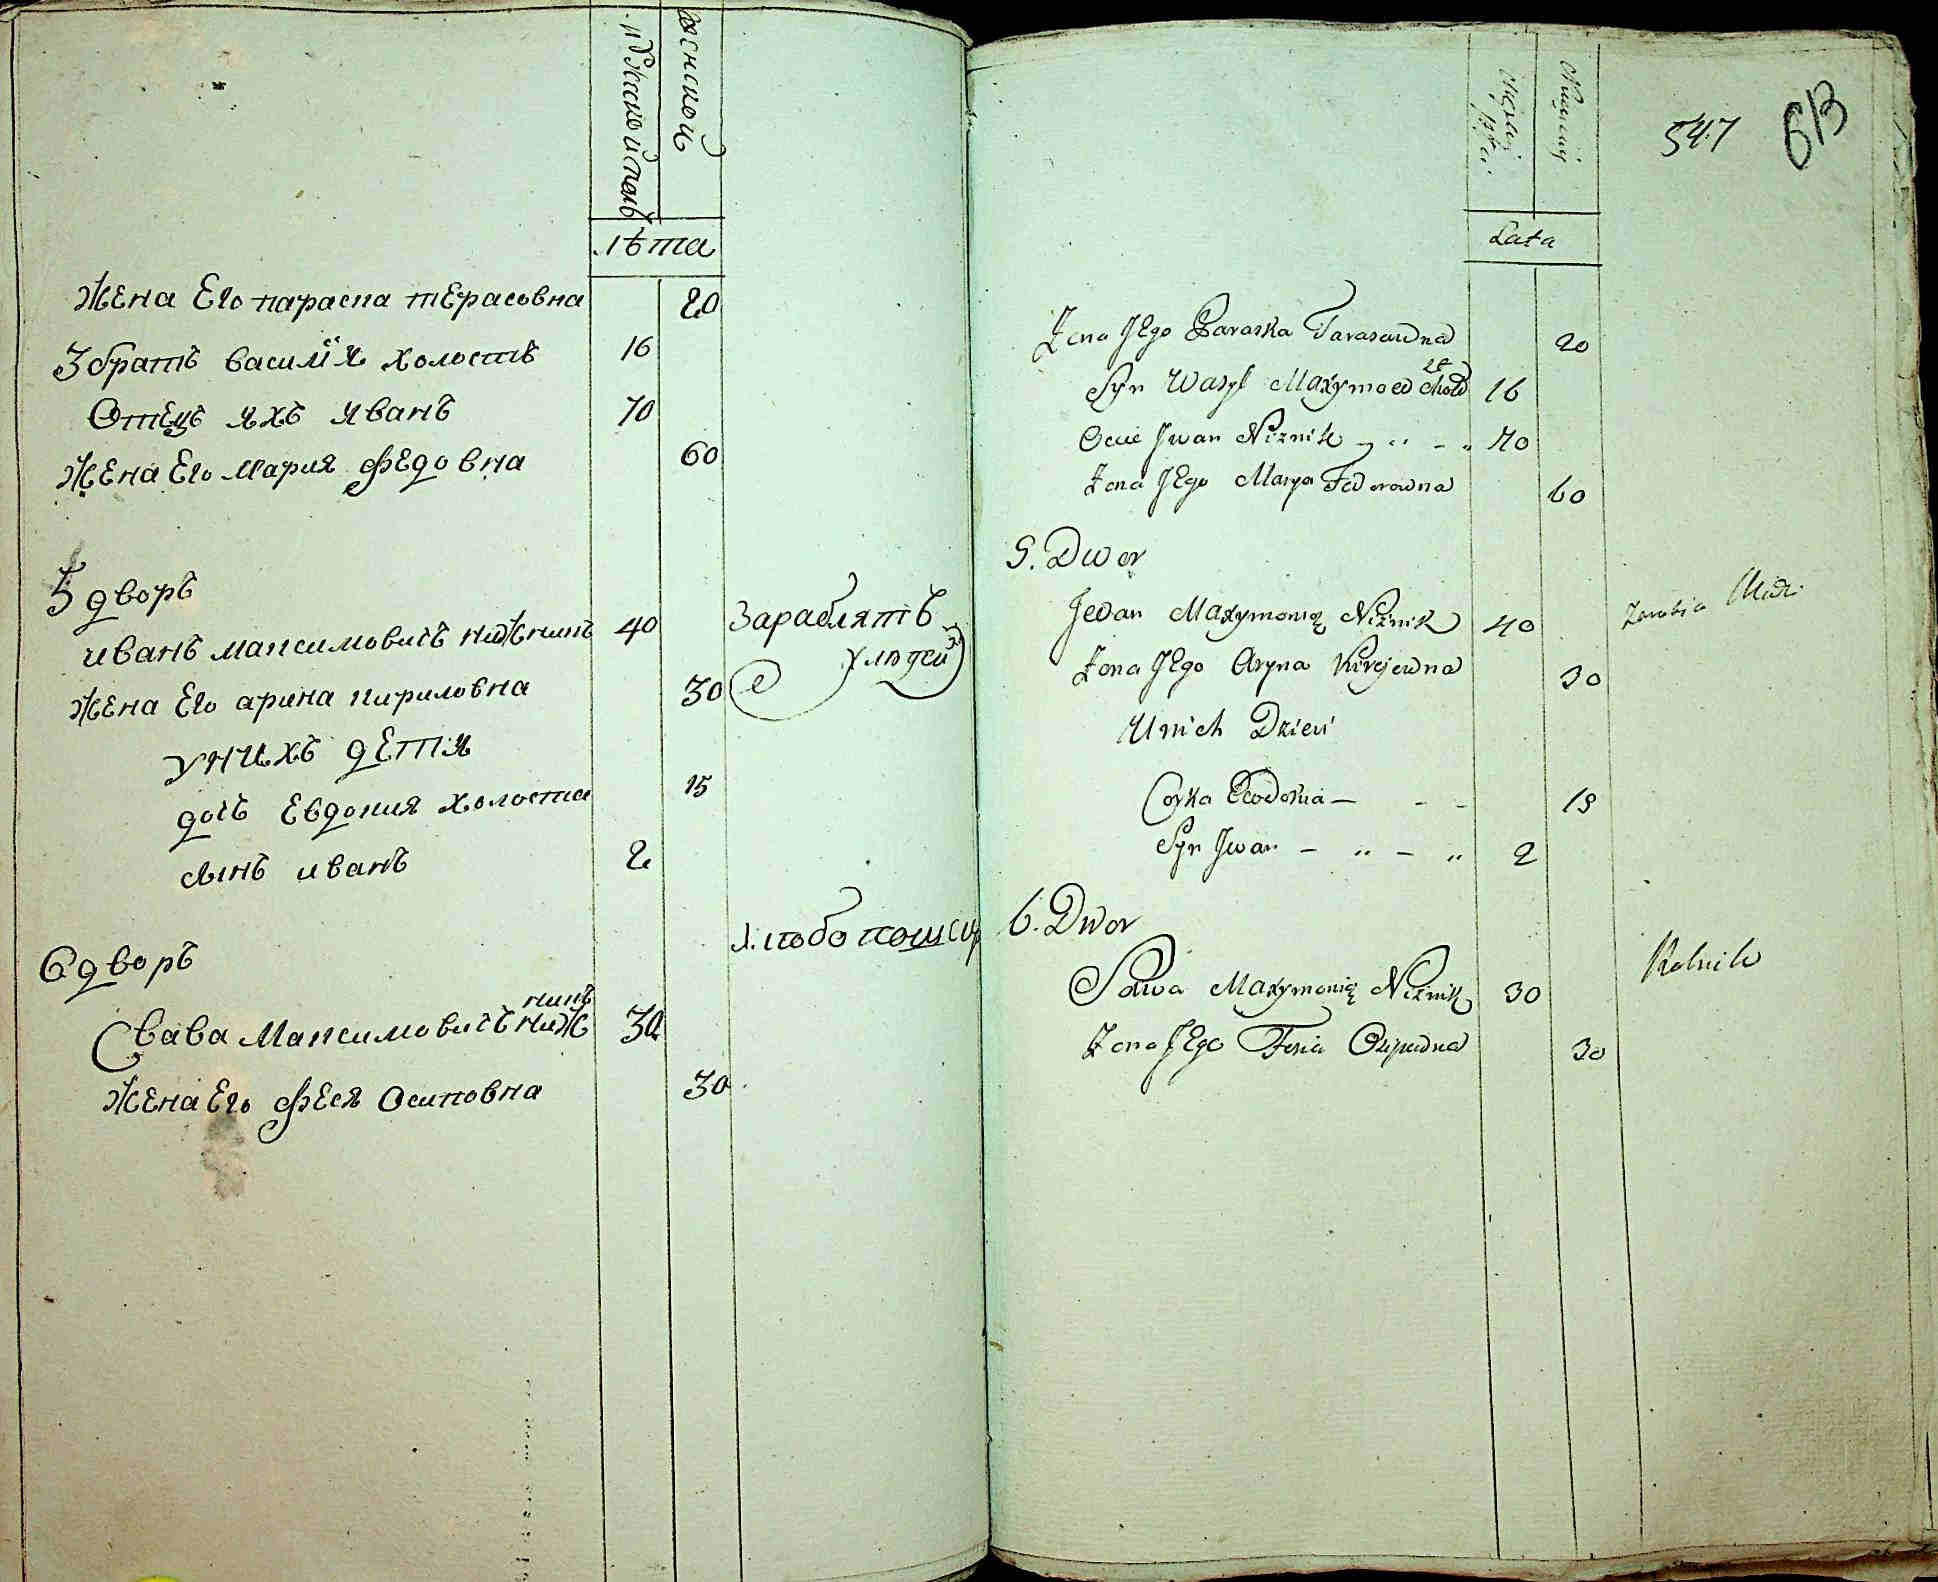 мужской полъ
женской
лѣта
Жена Его параска терасовна 20
3 братъ василiй холостъ 16
Отецъ ихъ иванъ 70
Жена Его Мария Федовна 60
5 дворъ
иванъ максимовичъ нижникъ 40 Зараблятъ
у людей
Жена Его арина кириловна 30
унихъ дети
дочъ Евдокия холоста 15
сынъ иванъ 2
6 дворъ
хлебопашец
Савва Максимовичъ нижникъ 30
Жена Его Феся Осиповна 30
547 613
Lata
Żona Jego Paraska Tarasowna 20
Syn Wasyl Maxymow 16
Ociec Jwan Niznik 70
Żona Jego Marya Fedorowna 60
5. Dwor
Jewan Maxymowicz Niznik 40 Zarobia
Żona Jego Aryna Kirejewna 30
U nich Dzieci
Corka Ewdokia 15
Syn Jwan 2
6. Dwor
Sawa Maxymowicz Niznik 30 Rolnik
Żona Jego Fesia Osipowna 30